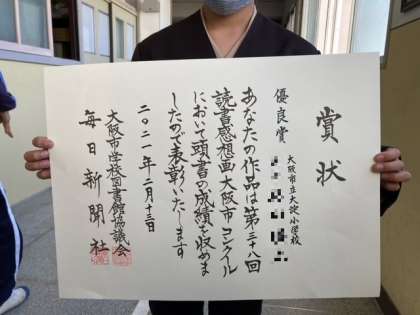 賞状
優良賞
大阪市立大淀小学校
あなたの作品は第三十八回
読書感想画大阪市コンクイル
において頭書の成績を収めま
したので表彰いたします
二〇二一年二月十三日
大阪市学校図書館協議会
毎日新聞社